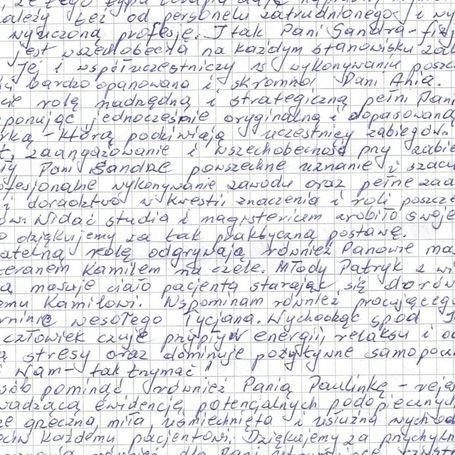 należy też od personelu zatrudnionego i wy
wyuczoną profesję. I tak Pani Sandra - fi
jest wszechobecna na każdym stanowisku
je i współuczestniczy w wykonywaniu posz
bardzo opanowana i skromna Pani Ania.
cie rolę nadrzędną i strategiczną pełni Pani
ponując jednocześnie oryginalną i dopasowaną
którą podziwiają uczestnicy zabiegów.
zaangażowanie i wszechobecność przy zabie
Pani Sandrze powszechne uznanie i szacu
ofesjonalne wykonywanie zawodu oraz pełne zaa
i doradztwo w kwestii znaczenia i roli poszcze
ów. Widać studia i magisterium zrobiło swoje
o dziękujemy za tak praktyczną postawę.
datelną rolę odgrywają również Panowie ma
teranem Kamilem na czele. Młody Patryk z wi
masuje ciało pacjenta starając się dorów
emu Kamilowi. Wspominam również pracującego
wesołego Tycjana. Wychodząc spod
człowiek czuje przypływ energii, relaksu i o
stresy oraz dominuje pozytywne samopocz
i Wam - tak trzymać!
sób pominąć również Panią Paulinkę - reje
wadzącą ewidencję potencjalnych podopiecznych
ze grzeczna, miła uśmiechnięta i usłużna wychod
każdemu pacjentowi. Dziękujemy za przychyln